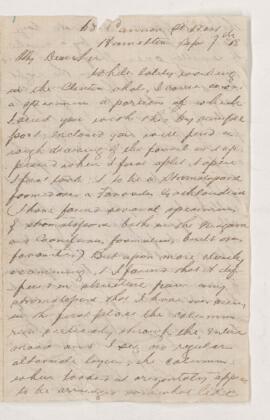 Cannon St East
Hamilton Sep 7th
My Dear Sir
While lately working
in the Clinton shale, I came across
a specimen a portion of which
I send you with this by sample
post, enclosed you will find a
rough drawing of the fossil as it ap-
peared when I first split it open
I first took it to be a Stromatopora
formed over a Favosites
I have found several specimens
of stromatopora both in the Niagara
and formations built over
favosites) But upon more closely
examining it I found that it dif-
fered in structure from any
stromatopora that I have ever seen,
in the first place the columns
run perfectly through the entire
mass and I see no regular
alternate layers, the columns
when looked at appear
to be arranged somewhat like